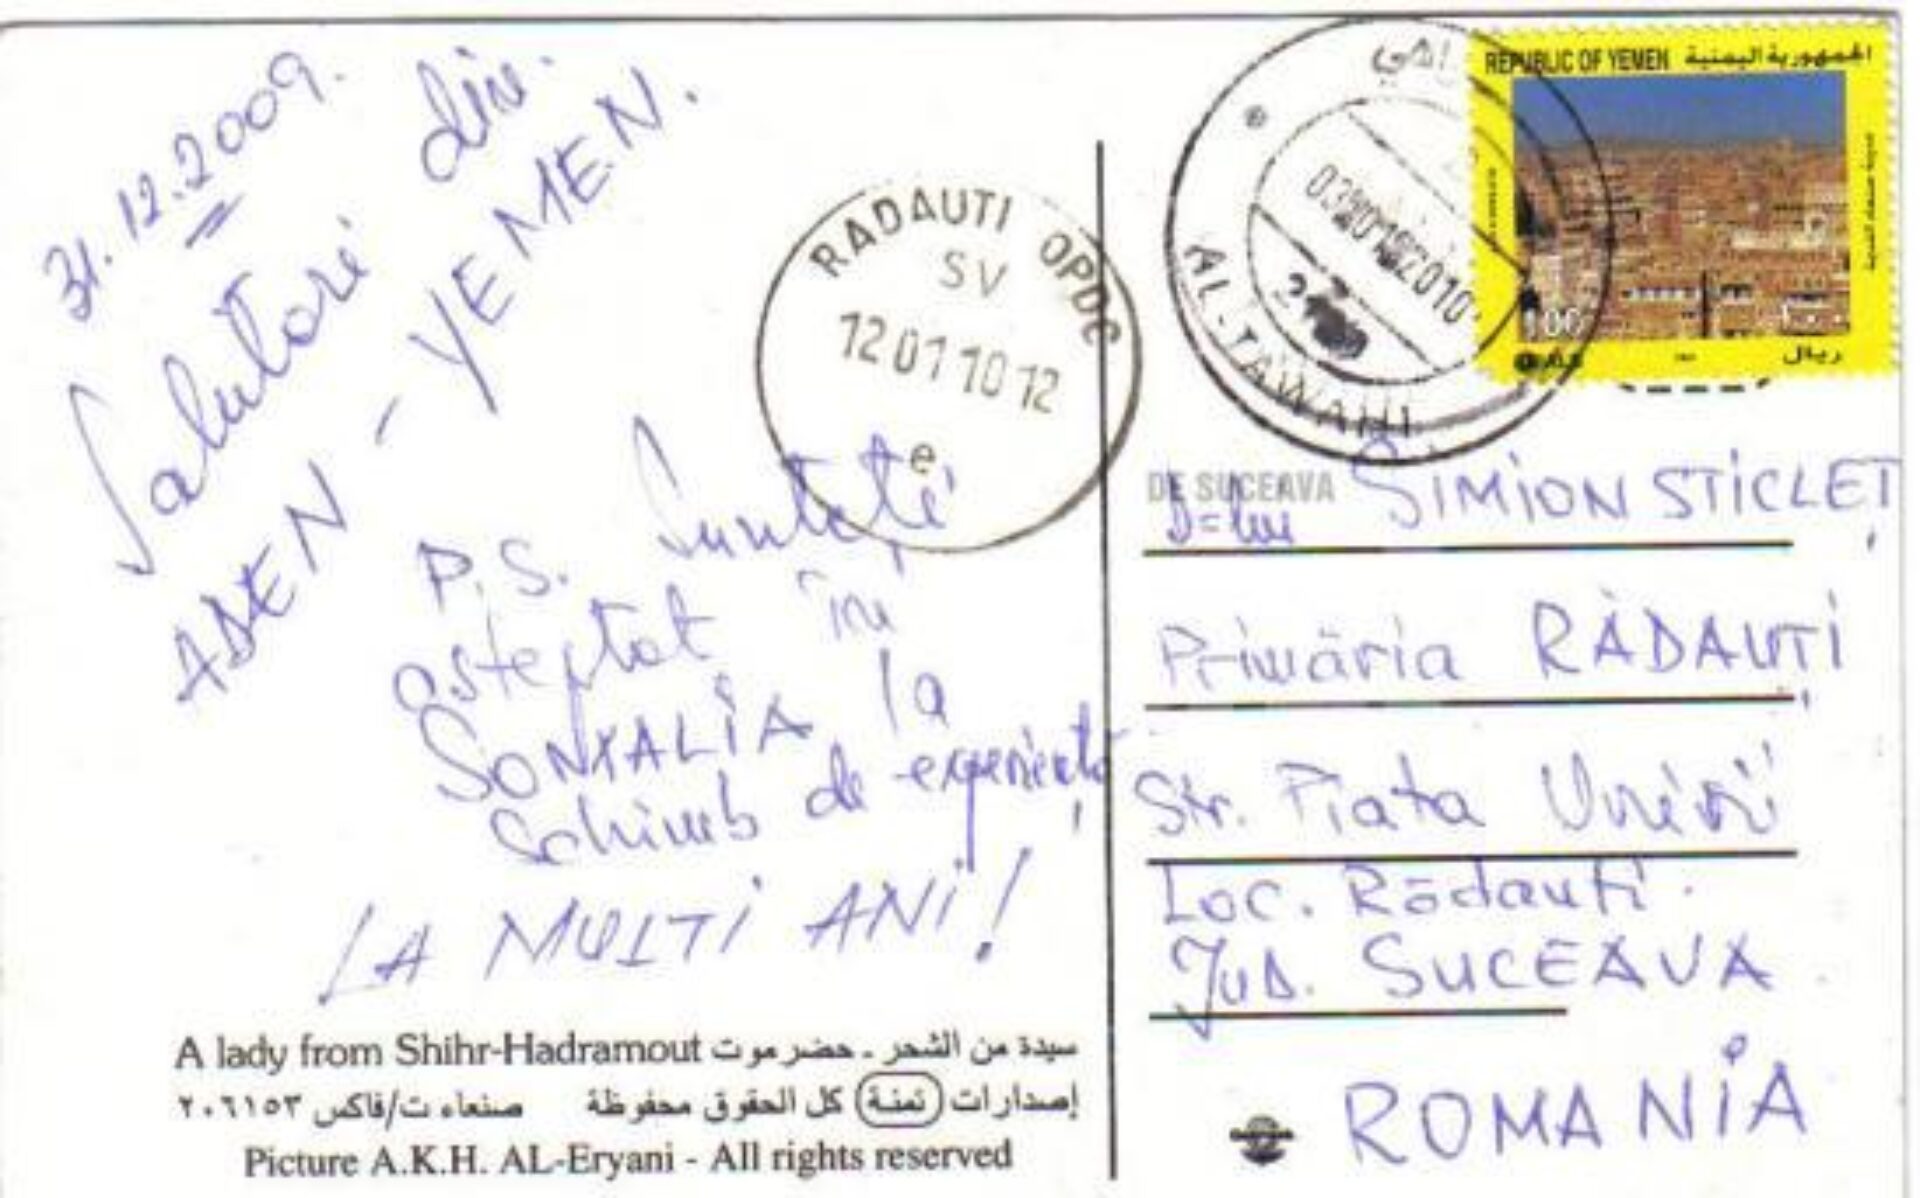 31.12.2009.
Salutări din.
ADEN - YEMEN.
P.S. Sunteți
așteptat în
SOMALIA la
Schimb de experiență
LA MULTI ANI!
A lady from Shihr-Hadramout سيدة من الشحر ـ حضرموت
إصدارات (تمنة) كل الحقوق محفوظة صنعاء ت/فاكس ٢٠٦١٥٣
Picture A.K.H. AL-Eryani - All rights reserved
RADAUTI OPDC
SV
12 01 10 12
e
AL-TAWAHI
REPUBLIC OF YEMEN الجمهورية اليمنية
ريال
DE SUCEAVA
D=lui SIMION STICLEȚ
Primăria RĂDĂUȚI
Str. Piata Unirii
Loc. Rădauti.
Jud. SUCEAVA
ROMANIA